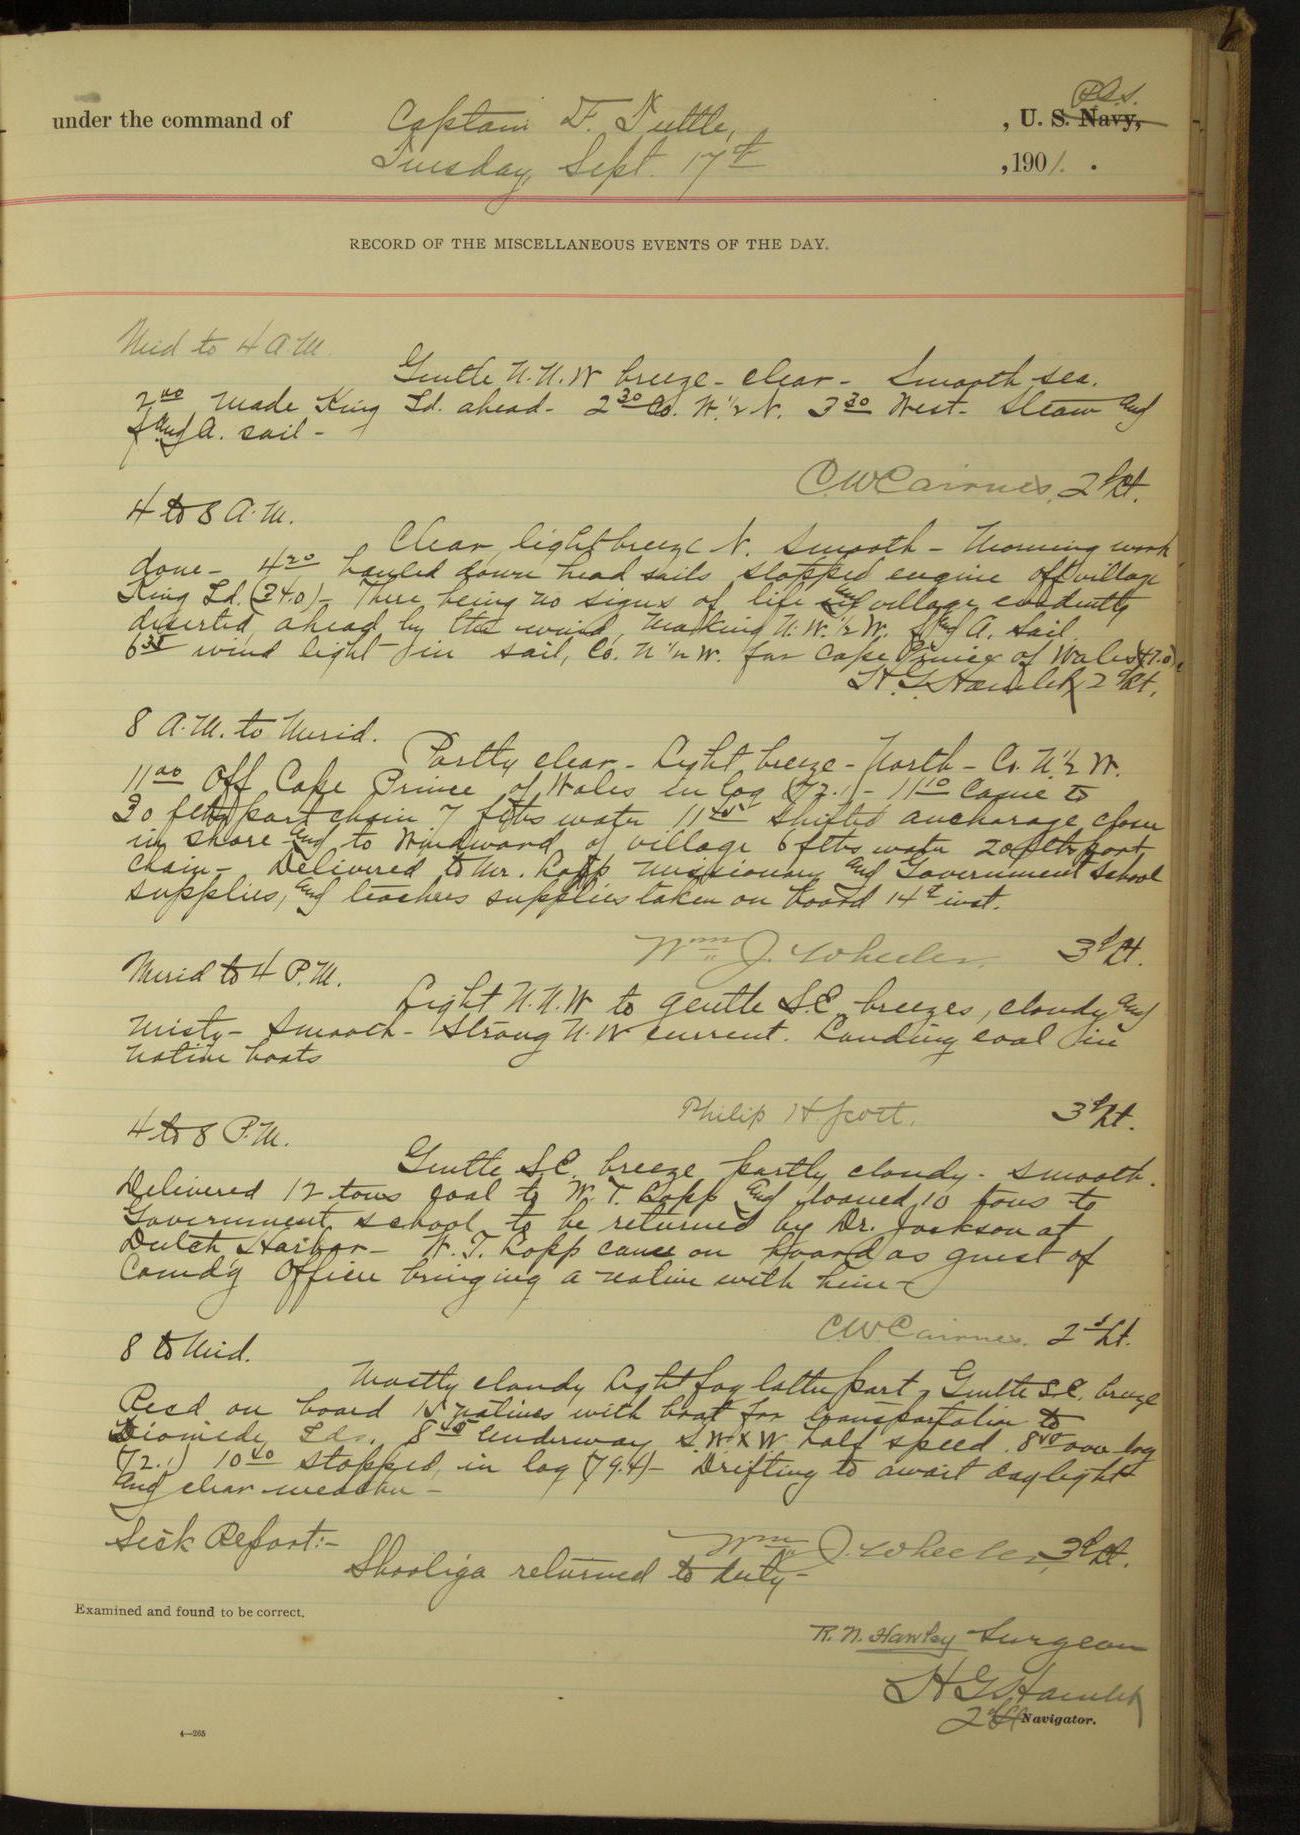 under the command of Captain F. Tuttle, , U. S. Navy, R.C.S.
Tuesday, Sept. 17th ,1901 .
RECORD OF THE MISCELLANEOUS EVENTS OF THE DAY.
Mid to 4 A.M.
Gentle N.N.W breeze - clear - Smooth sea.
2 00 Made King Id. ahead - 2 30 Co. W.½N. 3 30 West - Steam and
f and A. sail -
C.W. Cairnes, 2d Lt.
4 to 8 A.M.
Clear, light breeze N. Smooth - Morning work
done - 4 20 hauled down head sails stopped engine off village
King Id. (34.0) - There being no signs of life and village evidently
deserted, ahead by the wind, making N.W.½W. f and A. sail.
6 35 wind light in sail, Co. N½W. for Cape Prince of Wales (47.0).
H. G. Hamlet 2d Lt.
8 A.M. to Merid.
Partly clear - Light breeze - North - Co. N.½W.
11 00 Off Cape Prince of Wales in log (72.1) - 11 10 Came to
30 fths port chain 7 fths water 11 45 Shifted anchorage close
in shore and to Windward of village 6 fths water 20 fths port
chain - Delivered to Mr. Lopp missionary and Government School
supplies, and teachers supplies taken on board 14th inst.
Wm. J. Wheeler. 3d Lt.
Merid to 4 P.M.
Light N.N.W to gentle S.E. breezes, cloudy and
misty - Smooth - Strong N.W current. Landing coal in
native boats
Philip H. Scott. 3d Lt.
4 to 8 P.M.
Gentle S.E. breeze partly cloudy - smooth.
Delivered 12 tons coal to W. T. Lopp and loaned 10 tons to
Government school to be returned by Dr. Jackson at
Dutch Harbor - W. T. Lopp came on board as guest of
Comd'g Officer bringing a native with him -
C.W. Cairnes. 2d Lt.
8 to Mid.
Mostly cloudy light fog latter part, Gentle S.E. breeze
Recd on board 15 natives with boat for transportation to
Diomede Ids. 8 45 Underway S.W x W. half speed. 8 50 over log
(72.1) 10 40 stopped, in log (79.4) - Drifting to await daylight
and clear weather -
Wm. J. Wheeler, 3d Lt.
Sick Report:-
Shooliga returned to duty -
Examined and found to be correct.
R. N. Hawley Surgeon
H G Hamlet
2d Lt Navigator.
4—265